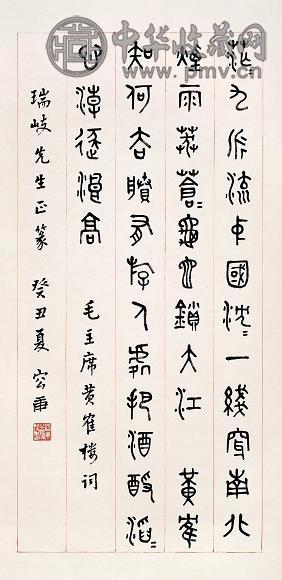 中华收藏网
www.pmv.cn
茫〻九派流中國沈〻一綫穿南北
煙雨莽蒼〻龜它鎖大江 黃隺
知何去賸有游人處把酒酹滔〻
心潮逐浪高 毛主席黄隺樓詞
瑞岐先生正篆 癸丑夏 容庚